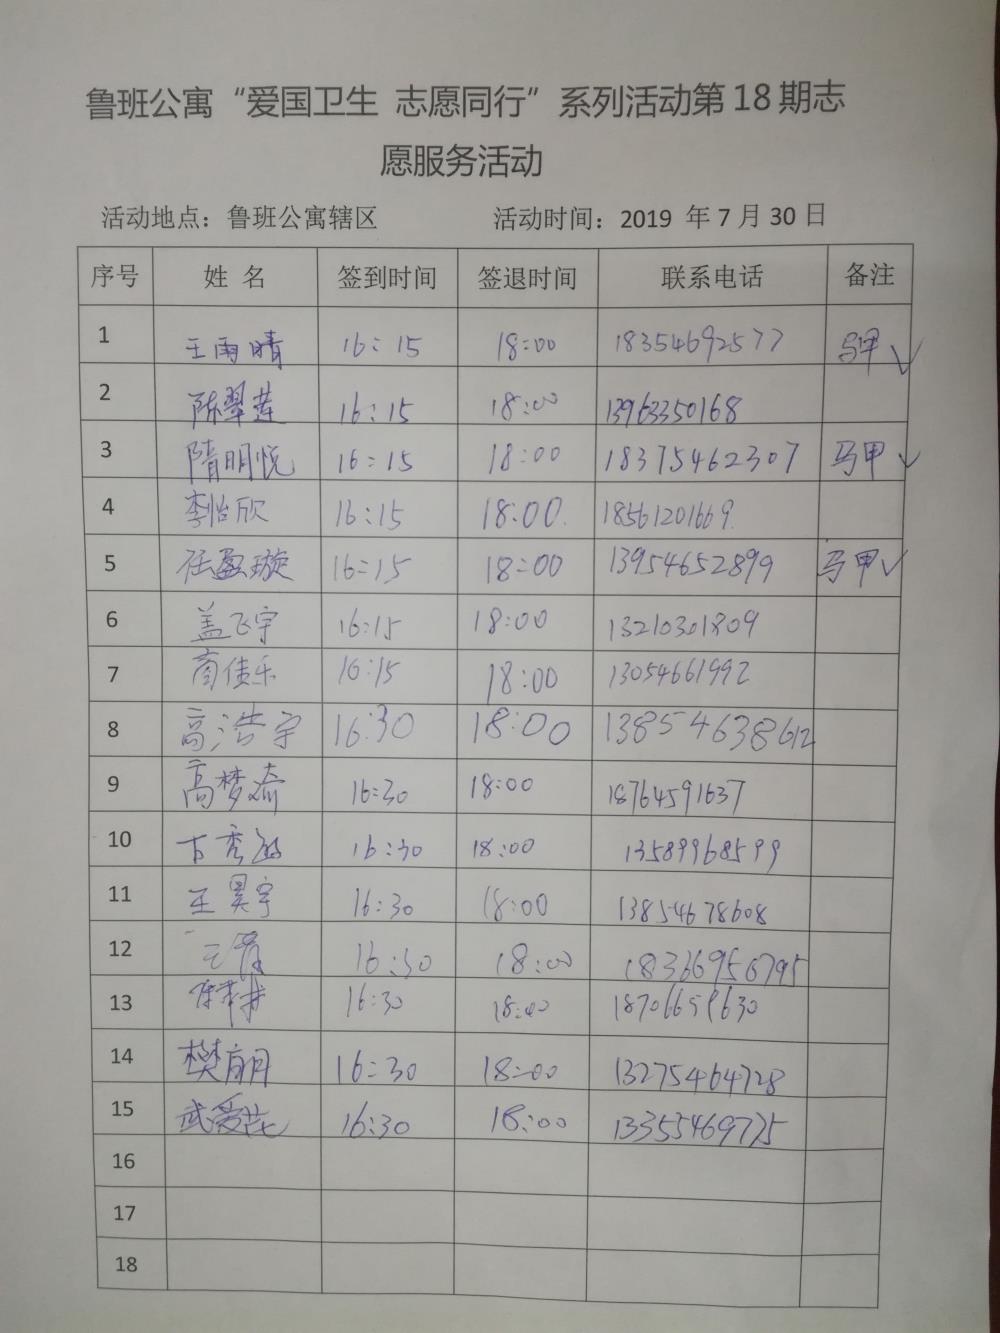 鲁班公寓“爱国卫生 志愿同行”系列活动第18期志
愿服务活动
活动地点：鲁班公寓辖区 活动时间：2019 年7月30日
序号 姓 名 签到时间 签退时间 联系电话 备注
1 王雨晴 16:15 18:00 18354692577 马甲✓
2 陈翠莲 16:15 18:00 13963350168
3 隋明悦 16:15 18:00 18375462307 马甲✓
4 李怡欣 16:15 18:00. 18561201669.
5 任盈璇 16:15 18:00 13954652899 马甲✓
6 盖飞宇 16:15 18:00 13210301809
7 商佳乐 16:15 18:00 13054661992
8 高浩宇 16:30 18:00 13854638612
9 高梦 16:30 18:00 18764591637
10 秀 16:30 18:00 13589968599
11 王昊宇 16:30 18:00 13854678608
12 16:30 18:00 18366956795
13 16:30 18:00
14 樊丽丹 16:30 18:00 13275464728
15 武爱花 16:30 18:00 13355469775
16
17
18